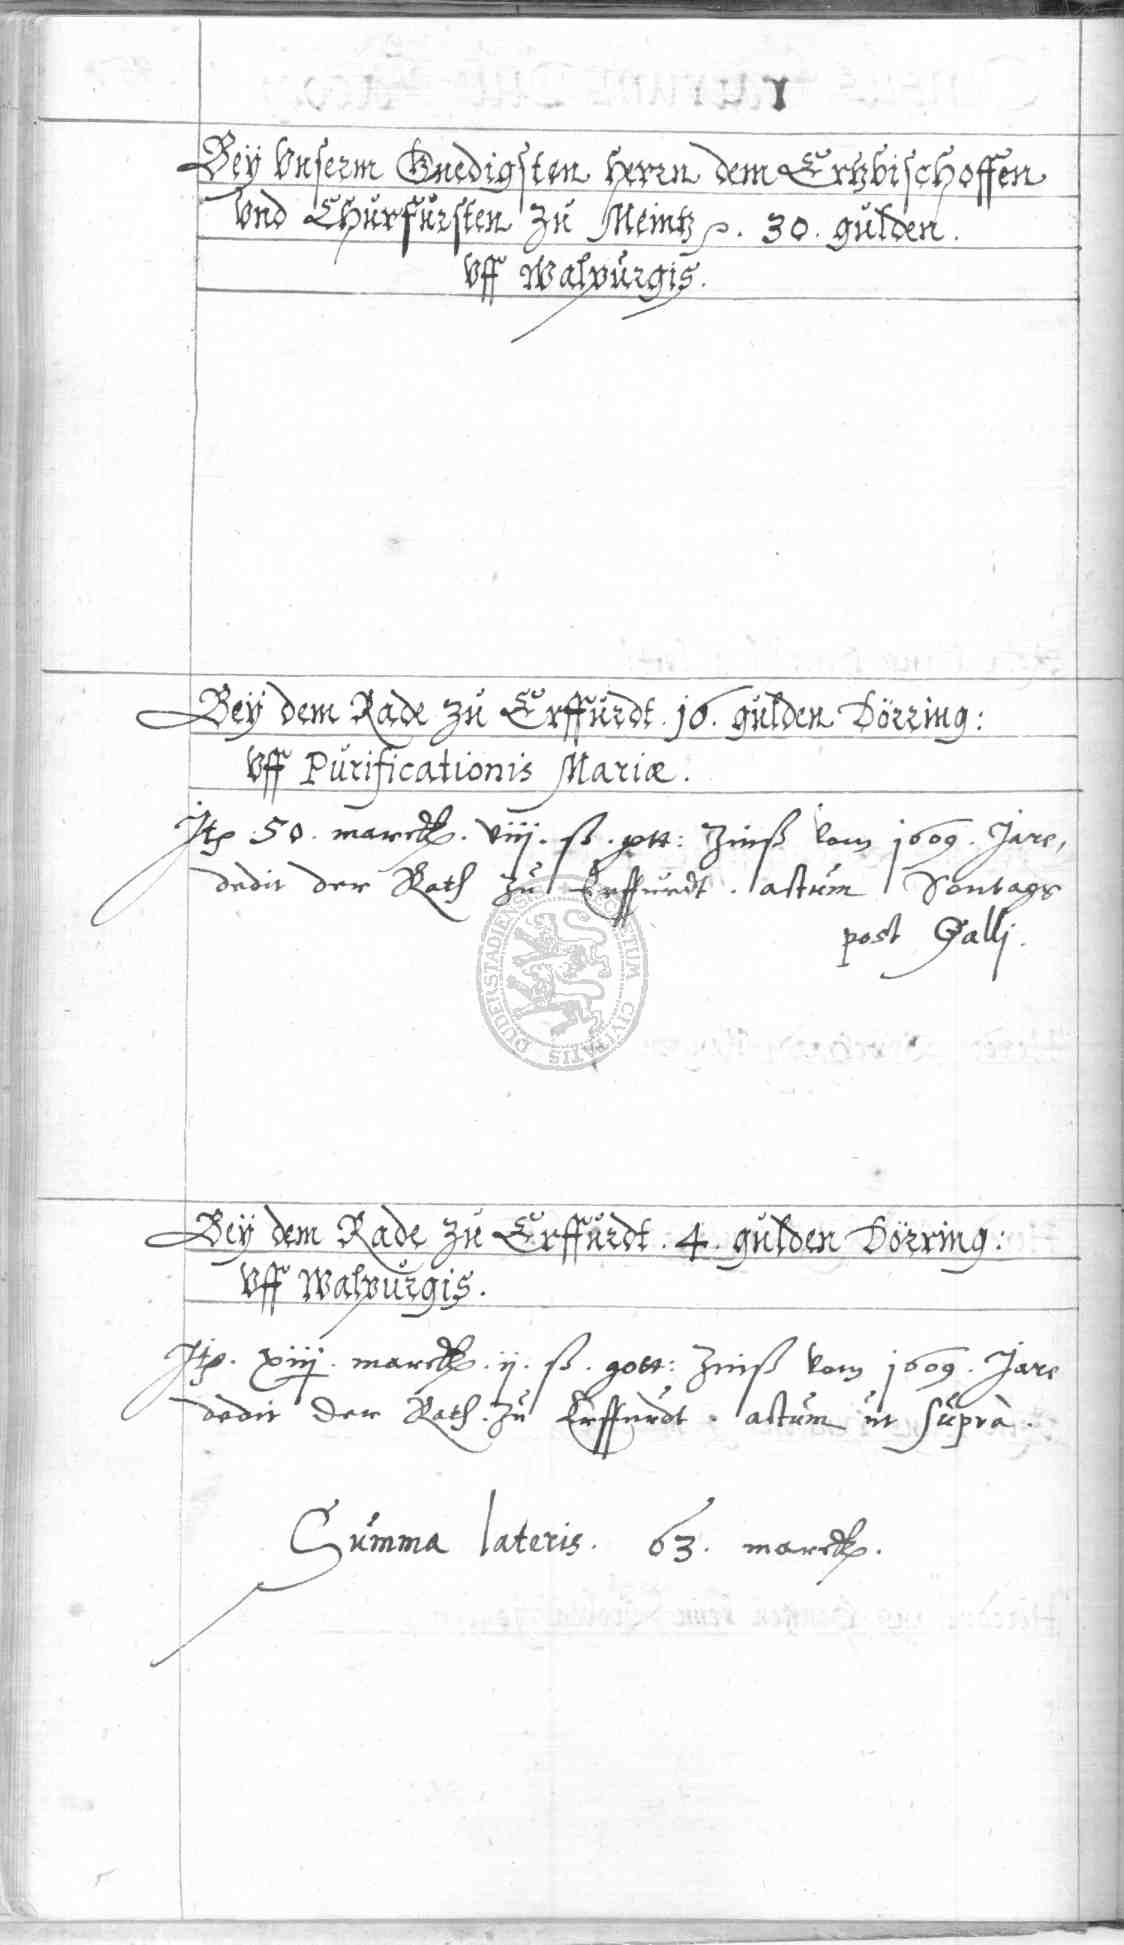 Beÿ Vnserm Gnedigsten Herrn dem Ertzbischoffen
Vnd Churfursten zu Meintz p. 30. gulden.
Vff Walpurgis.
Beÿ dem Rade zu Erffurdt. 16. gulden Dörring:
Vff Purificationis Mariæ.
Itp 50. marck. viij. ß. gott: Zinß vom 1609. Jare,
dedit der Rath zu Erffurdt. actum Sontags
post Galli.
DUDERSTADIENSIS SECRETUM CIVITATIS
Beÿ dem Rade zu Erffurdt. 4. gulden Dörring:
Vff Walpurgis.
Itp. xiij. marck. ij. ß. gott: Zinß vom 1609. Jare
dedit der Rath. zu Erffurdt. actum ut supra.
Summa lateris. 63. marck.